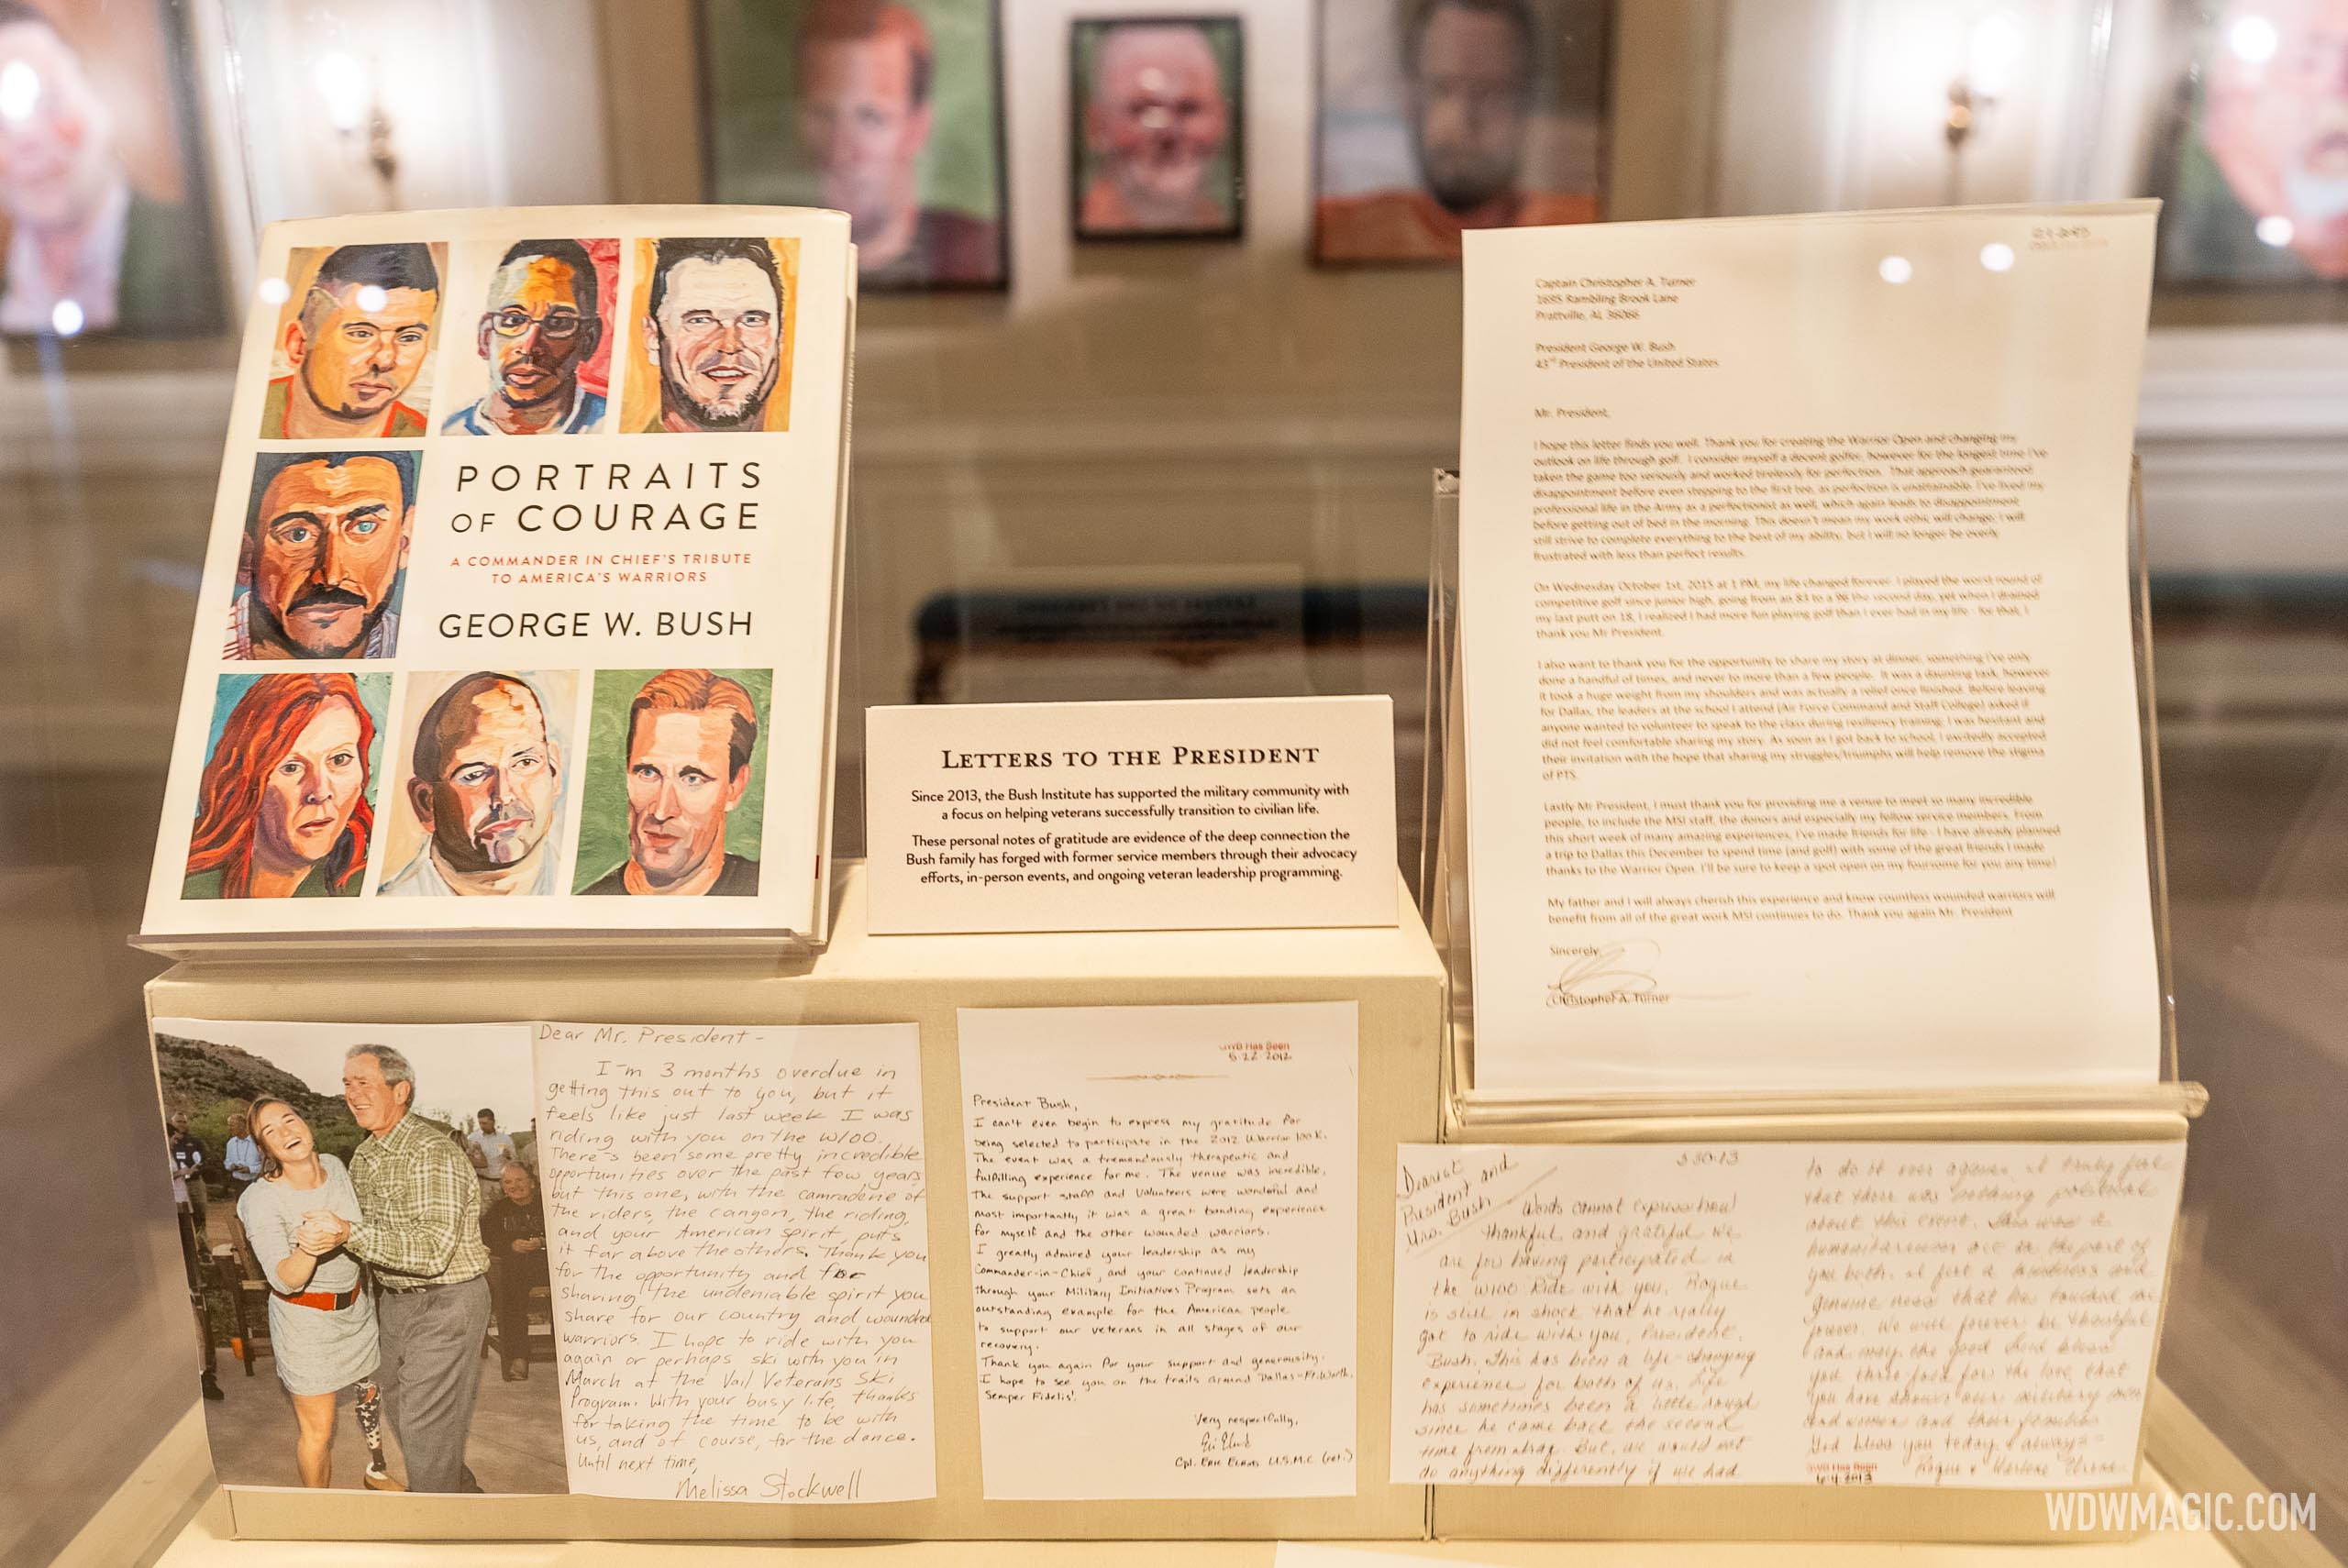 PORTRAITS
OF COURAGE
A COMMANDER IN CHIEF'S TRIBUTE
TO AMERICA'S WARRIORS
GEORGE W. BUSH
LETTERS TO THE PRESIDENT
Since 2013, the Bush Institute has supported the military community with
a focus on helping veterans successfully transition to civilian life.
These personal notes of gratitude are evidence of the deep connection the
Bush family has forged with former service members through their advocacy
efforts, in-person events, and ongoing veteran leadership programming.
Captain Christopher A. Turner
1695 Rambling Brook Lane
Prattville, AL 36066
President George W. Bush
43rd President of the United States
Mr. President,
I hope this letter finds you well. Thank you for creating the Warrior Open and changing my
outlook on life through golf. I consider myself a decent golfer, however for the longest time I've
taken the game too seriously and worked tirelessly for perfection. That approach guaranteed
disappointment before even stepping to the first tee, as perfection is unattainable. I've lived my
professional life in the Army as a perfectionist as well, which again leads to disappointment
before getting out of bed in the morning. This doesn't mean my work ethic will change; I will
still strive to complete everything to the best of my ability, but I will no longer be overly
frustrated with less than perfect results.
On Wednesday October 1st, 2015 at 1 PM, my life changed forever. I played the worst round of
competitive golf since junior high, going from an 83 to a 98 the second day, yet when I drained
my last putt on 18, I realized I had more fun playing golf than I ever had in my life - for that, I
thank you Mr President.
I also want to thank you for the opportunity to share my story at dinner, something I've only
done a handful of times, and never to more than a few people. It was a daunting task, however
it took a huge weight from my shoulders and was actually a relief once finished. Before leaving
for Dallas, the leaders at the school I attend (Air Force Command and Staff College) asked if
anyone wanted to volunteer to speak to the class during resiliency training. I was hesitant and
did not feel comfortable sharing my story. As soon as I got back to school, I excitedly accepted
their invitation with the hope that sharing my struggles/triumphs will help remove the stigma
of PTS.
Lastly Mr President, I must thank you for providing me a venue to meet so many incredible
people, to include the MSI staff, the donors and especially my fellow service members. From
this short week of many amazing experiences, I've made friends for life - I have already planned
a trip to Dallas this December to spend time (and golf) with some of the great friends I made
thanks to the Warrior Open. I'll be sure to keep a spot open on my foursome for you any time!
My father and I will always cherish this experience and know countless wounded warriors will
benefit from all of the great work MSI continues to do. Thank you again Mr. President
Sincerely,
Christopher A. Turner
Dear Mr. President -
I'm 3 months overdue in
getting this out to you, but it
feels like just last week I was
riding with you on the W100.
There's been some pretty incredible
opportunities over the past few years
but this one, with the camraderie of
the riders, the canyon, the riding,
and your American spirit, puts
it far above the others. Thank you
for the opportunity and for
sharing the undeniable spirit you
share for our country and wounded
warriors. I hope to ride with you
again or perhaps ski with you in
March at the Vail Veterans Ski
Program. With your busy life, thanks
for taking the time to be with
us, and of course, for the dance.
Until next time,
Melissa Stockwell
GWB Has Seen
5-22-2012
President Bush,
I can't even begin to express my gratitude for
being selected to participate in the 2012 Warrior 100K.
The event was a tremendously therapeutic and
fulfilling experience for me. The venue was incredible,
the support staff and volunteers were wonderful and
most importantly it was a great bonding experience
for myself and the other wounded warriors.
I greatly admired your leadership as my
Commander-in-Chief, and your continued leadership
through your Military Initiatives Program sets an
outstanding example for the American people
to support our veterans in all stages of our
recovery.
Thank you again for your support and generousity.
I hope to see you on the trails around Dallas-Ft. Worth.
Semper Fidelis!
Very respectfully,
Cpl. Eric Evans U.S.M.C. (ret.)
5-30-13
Dearest
President and
Mrs. Bush
Words cannot express how
thankful and grateful we
are for having participated in
the W100 Ride with you. Rogue
is still in shock that he really
got to ride with you, President
Bush. This has been a life-changing
experience for both of us. Life
has sometimes been a little rough
since he came back the second
time from Iraq. But, we would not
do anything differently if we had
to do it over again. I truly feel
that there was nothing political
about this event. This was a
humanitarian act on the part of
you both. I felt a kindness and
genuine that has touched me
forever. We will forever be thankful
and may the good Lord bless
you three fold for the love that
you have shown our military men
and women and their families
God bless you today & always
GWB Has Seen
6-4-2013
WDWMAGIC.COM